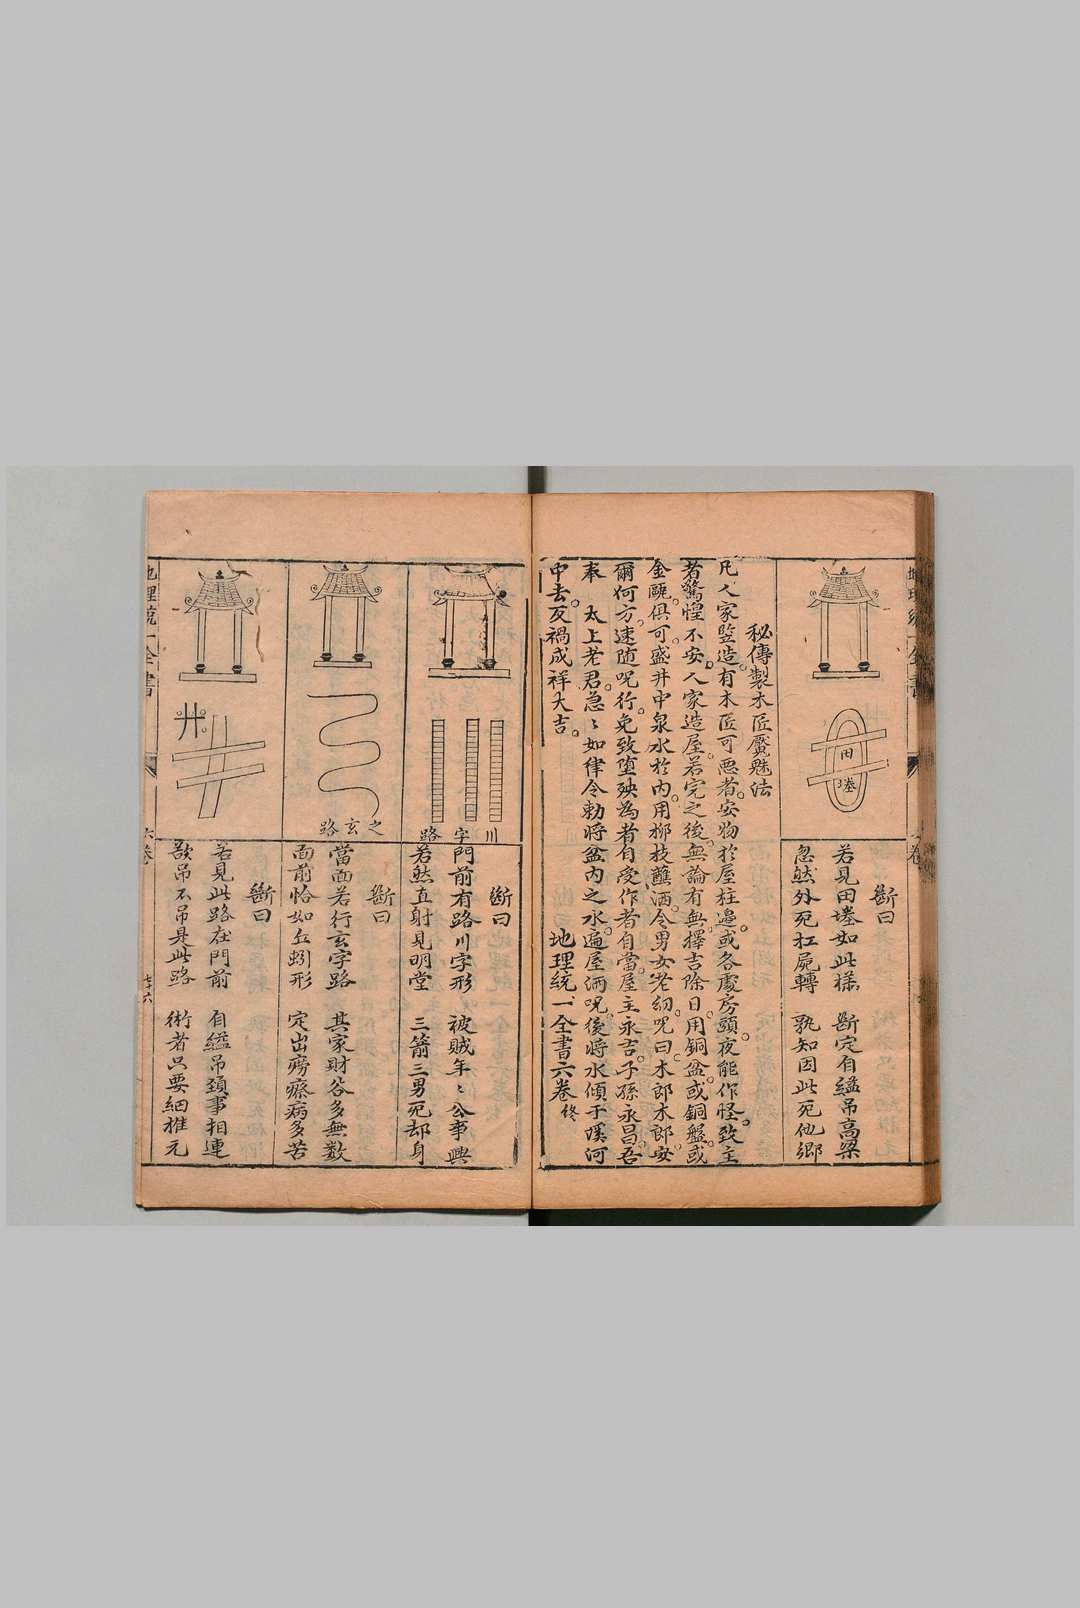 田塂
斷曰
若見田塂如此樣 斷定自縊吊高梁
忽然外死扛屍轉 孰知因此死他鄉
秘傳製木匠魘魅法
凡人家竪造有木匠可惡者安物於屋柱邊或各處房頭夜能作怪致主
者驚惶不安人家造屋若完之後無論有無擇吉除日用銅盆或銅盤或
金甌俱可盛井中泉水於內用柳枝蘸洒令男女老幼咒曰木郎木郎安
爾何方速隨咒行免致墮殃為者自受作者自當屋主永吉子孫永昌吾
奉 太上老君急〻如律令勅將盆內之水遍屋洒咒後將水傾于溪河
中去反禍成祥大吉
地理統一全書六卷終
川字路
斷曰
門前有路川字形 被賊年〻公事興
若然直射見明堂 三箭三男死却身
之玄路
斷曰
當面若行玄字路 其家財谷多無數
面前恰如丘蚓形 定出癆瘵病多苦
廾
斷曰
若見此路在門前 自縊吊頸事相連
欲吊不吊是此路 術者只要細推元
地理統一全書 六卷 七十六